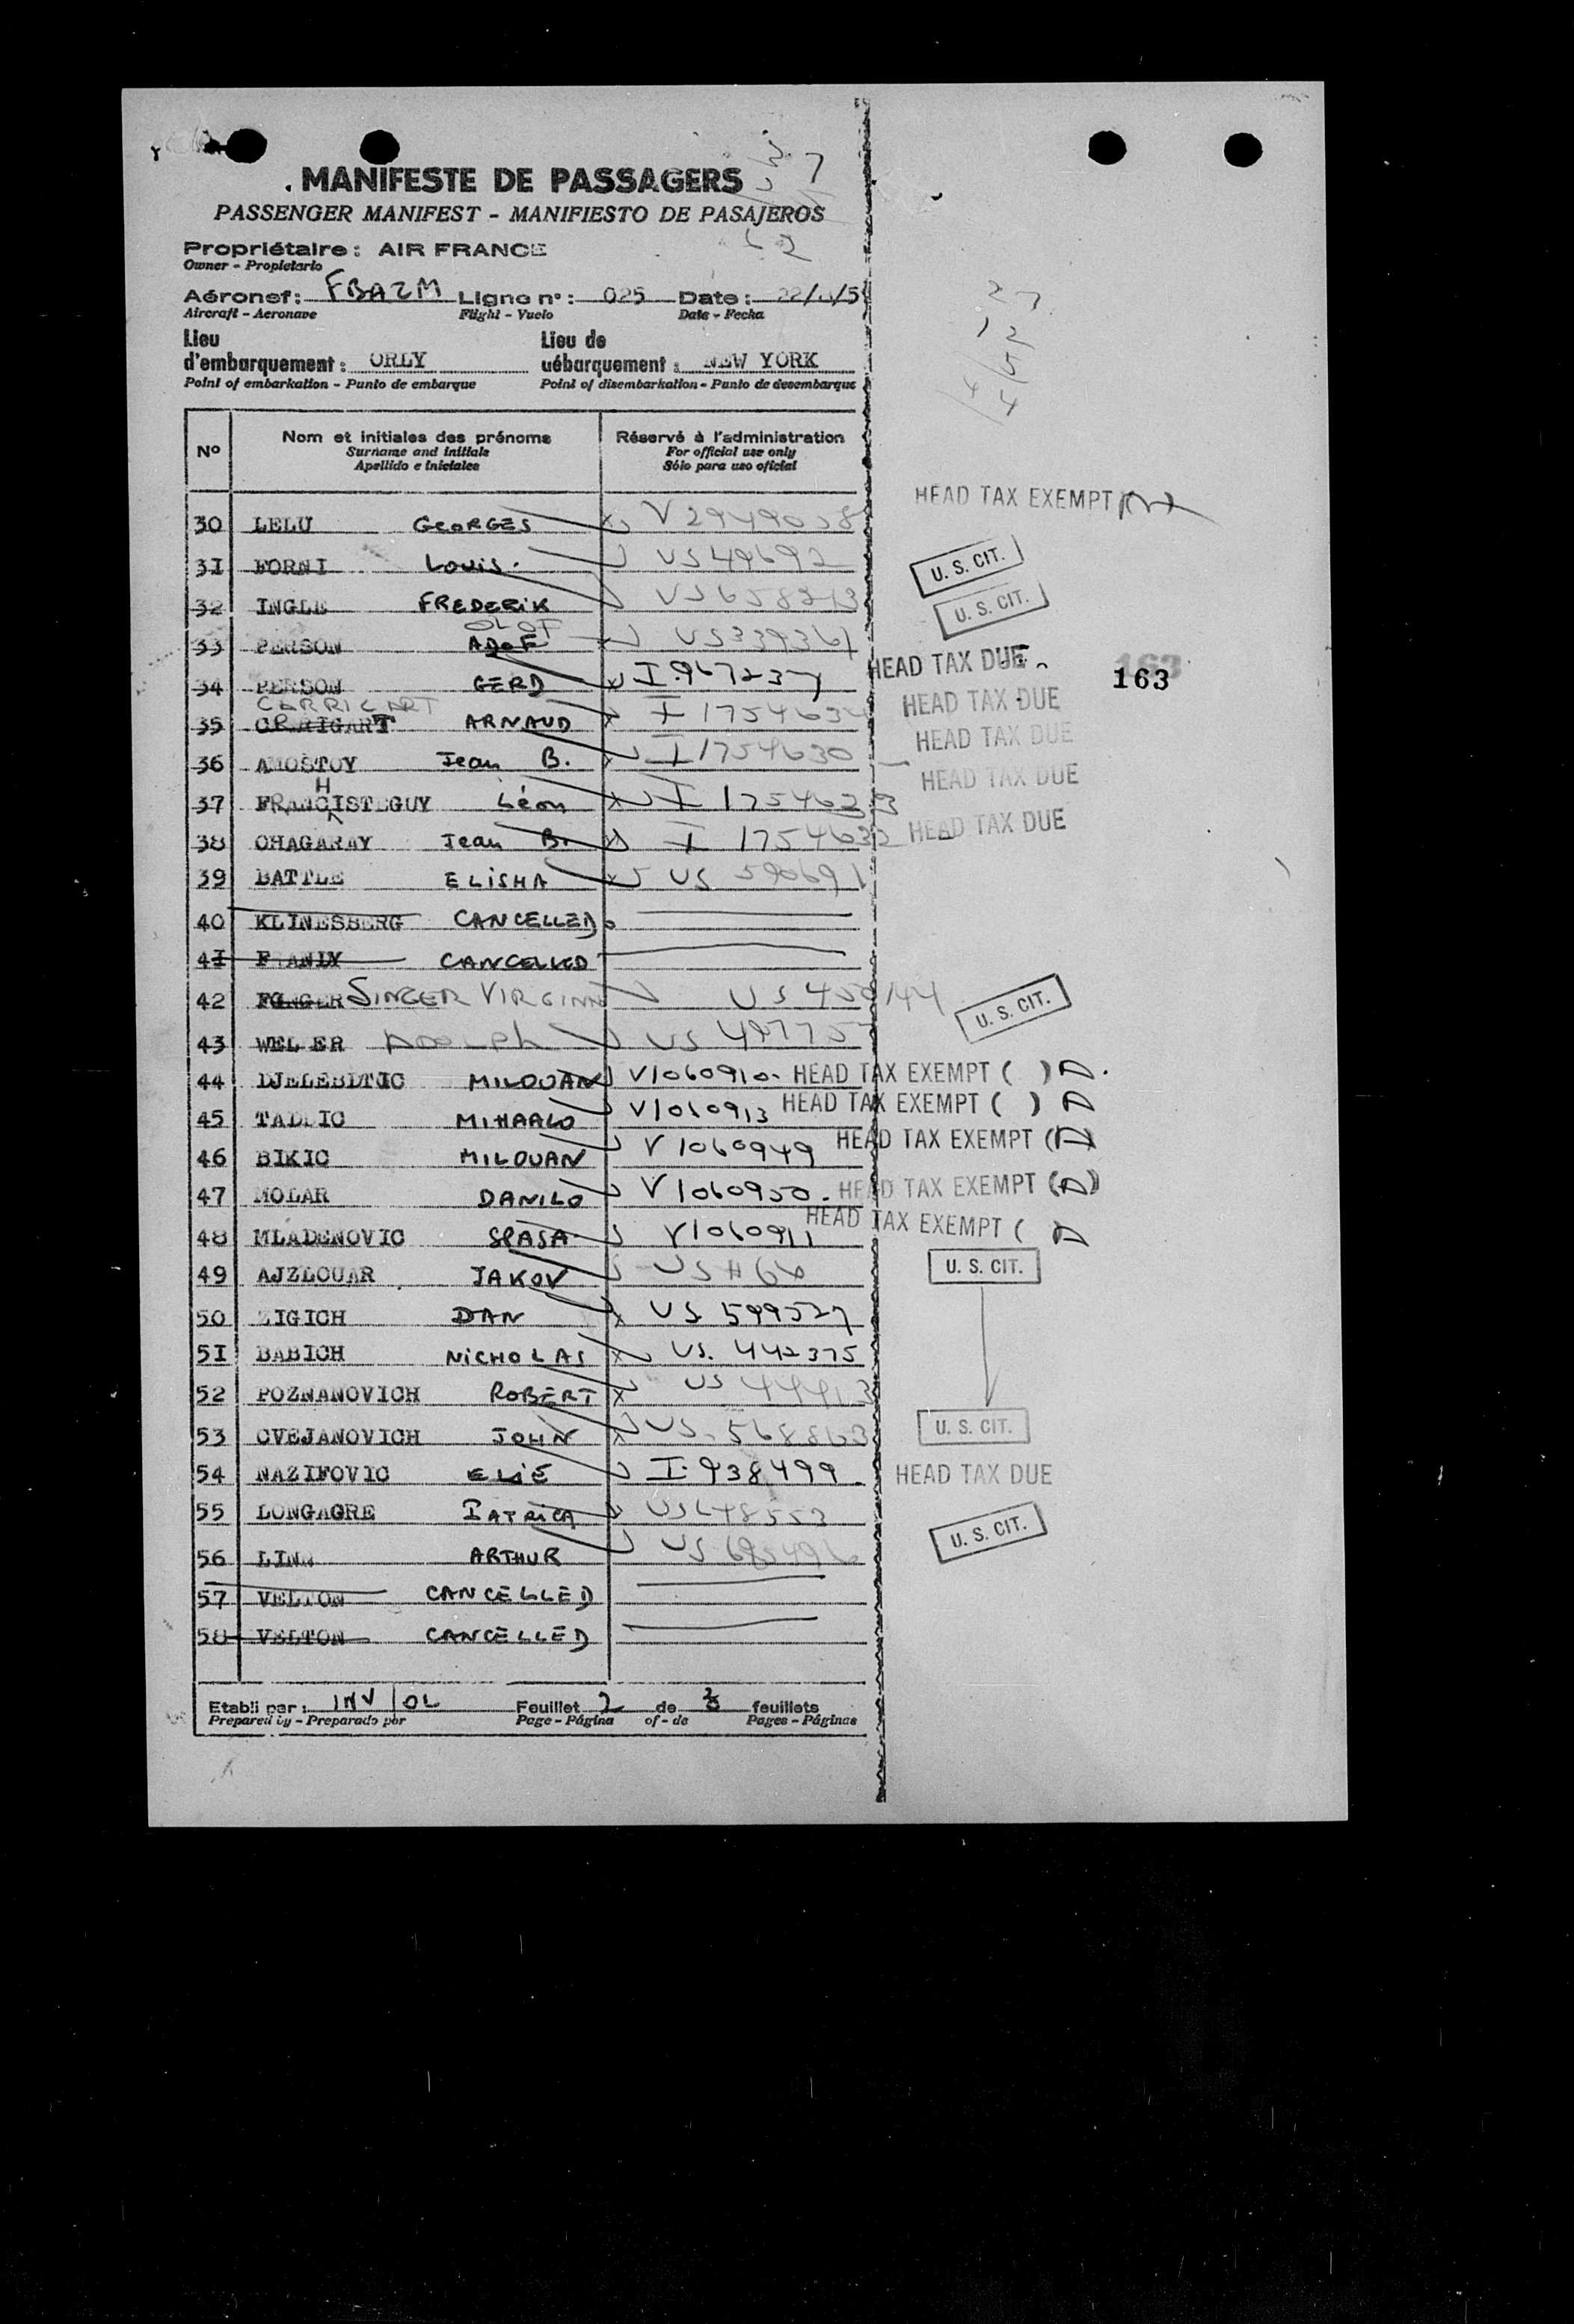 MANIFESTE DE PASSAGERS
PASSENGER MANIFEST - MANIFIESTO DE PASAJEROS
Propriétaire : AIR FRANCE
Owner - Propietario
Aéronef : FBAZM Ligne n° : 025 Date :
Aircraft - Aeronave Flight - Vuelo Date - Fecha
Lieu d'embarquement : ORLY Lieu de débarquement : NEW YORK
Point of embarkation - Punto de embarque Point of disembarkation - Punto de desembarque
N° Nom et initiales des prénoms Réservé à l'administration
Surname and initials For official use only
Apellido e iniciales Sólo para uso oficial
HEAD TAX EXEMPT
30 LELU GEORGES
31 FORNI LOUIS. US 49692 U. S. CIT.
32 INGLE FREDERIK U. S. CIT.
OLOF
33 PERSON ADOF US 339361
34 PERSON GERD I.967237 HEAD TAX DUE 163
CARRICART
35 ARNAUD I 1754634 HEAD TAX DUE
36 AMOSTOY Jean B. I 1754630 HEAD TAX DUE
H
37 FRANCISTEGUY Léon I 1754629 HEAD TAX DUE
38 OHAGARAY Jean B. I 1754632 HEAD TAX DUE
39 BATTLE ELISHA US 590691
40 KLINESBERG CANCELLED
41 CANCELLED
42 SINGER VIRGINIA U. S. CIT.
43 ADOLPH
44 MILOUAN V1060910. HEAD TAX EXEMPT ( )
45 MIHAALO V1060913 HEAD TAX EXEMPT ( )
46 BIKIC MILOUAN V1060949 HEAD TAX EXEMPT
47 MOLAR DANILO V1060950. HEAD TAX EXEMPT
48 MLADENOVIC SPASA V1060911 HEAD TAX EXEMPT (
49 AJZLOUAR JAKOV U. S. CIT.
50 ZIGICH DAN US 599527
51 BABICH NICHOLAS US. 442375
52 POZNANOVICH ROBERT US
53 CVEJANOVICH JOHN US. 568863 U. S. CIT.
54 NAZIFOVIC ELIE I.938499 HEAD TAX DUE
55 LONGAGRE PATRICA
56 LINN ARTHUR U. S. CIT.
57 VELTON CANCELLED
58 VELTON CANCELLED
Etabli par : INV / OL Feuillet 2 de 3 feuillets
Prepared by - Preparado por Page - Página of - de Pages - Páginas